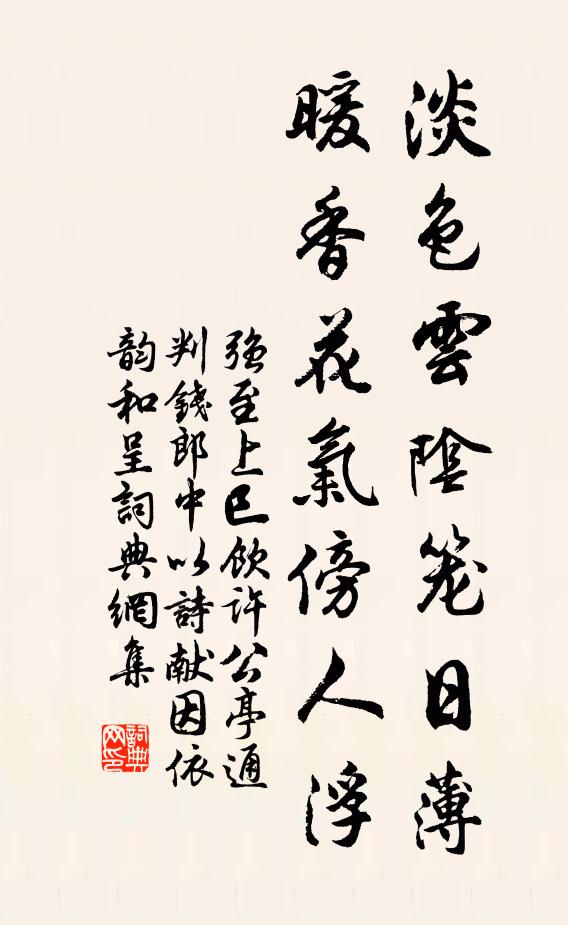 淡色雲陰笼日薄
暖香花氣傍人浮
强至上巳飲許公亭通
判錢郎中以詩献因依
韵和呈詞典網集
詞典
网印